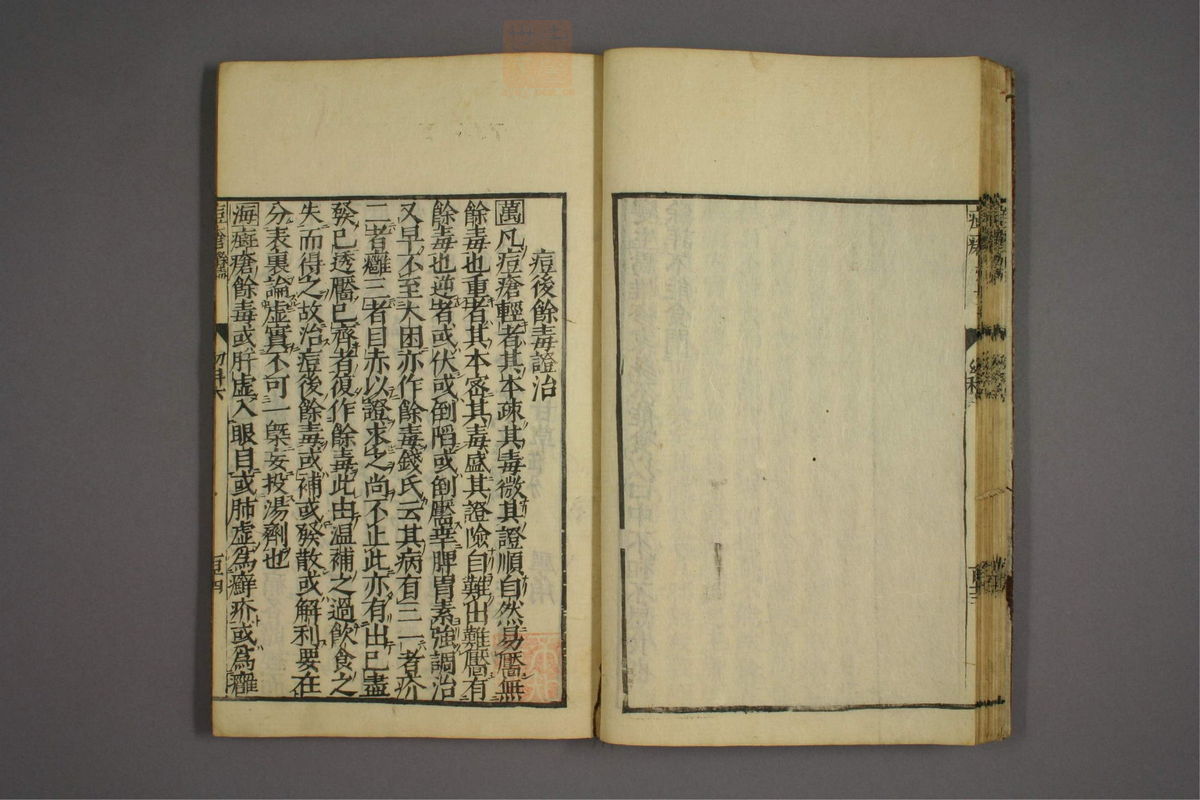 痘後餘毒證治
萬凡痘瘡輕者其本疎其毒微其證順自然易靨無
餘毒也重者其本密其毒盛其證險自難出難靨有
餘毒也逆者或伏或倒陷或倒靨幸脾胃素強調治
又早不至大困亦作餘毒錢氏云其病有三一者疥
二者癰三者目赤以證求之尚不止此亦有出已盡
發已透靨已齊者復作餘毒此由温補之過飲食之
失而得之故治痘後餘毒或補或發散或解利要在
分表裏論虛實不可一槩妄投湯劑也
海痘瘡餘毒或肝虛入眼目或肺虛為癬疥或為癰
痘瘡 幼科六 百四